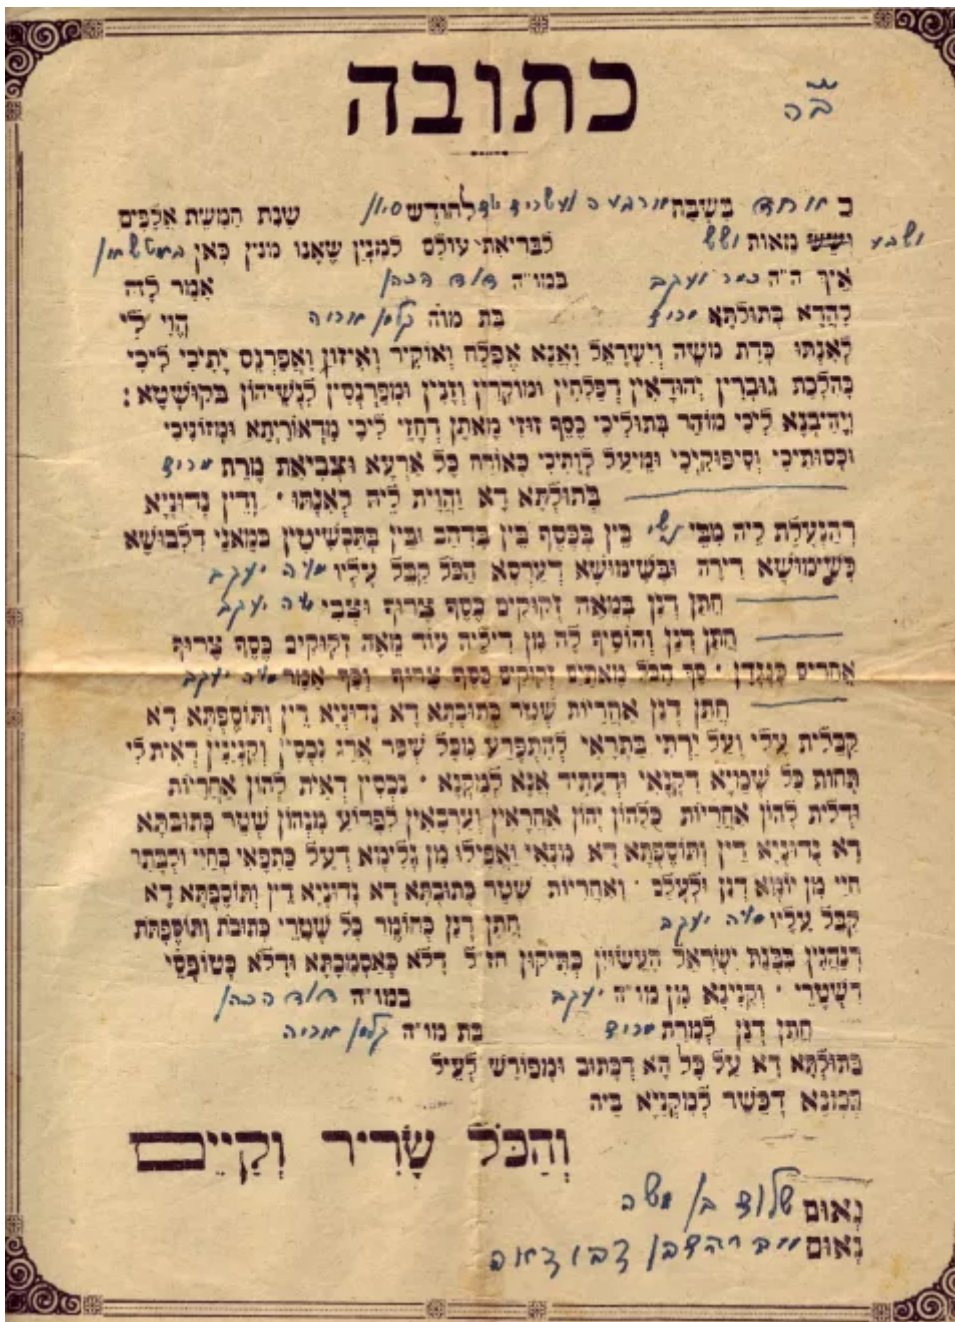 ב״ה
כתובה
ב אחד בשבת ארבעה ועשרים יום לחודש סיון שנת חמשת אלפים
ושש מאות ושש לבריאת עולם למנין שאנו מנין כאן ושבע
איך ה״ה יעקב במו״ה דוד הכהן אמר לה
להדא בתולתא בת מו״ה קלמן אריה הֱוִי לִי
לְאִנְתּוּ כְּדַת מֹשֶׁה וְיִשְׂרָאֵל וַאֲנָא אֶפְלַח וְאוֹקִיר וְאֵיזוּן וַאֲפַרְנֵס יָתִיכִי לִיכִי
כְּהִלְכַת גּוּבְרִין יְהוּדָאִין דְּפָלְחִין וּמוֹקְרִין וְזָנִין וּמְפַרְנְסִין לִנְשֵׁיהוֹן בְּקוּשְׁטָא:
וִיהִיבְנָא לִיכִי מוֹהַר בְּתוּלַיְכִי כֶּסֶף זוּזֵי מָאתָן דְּחָזֵי לִיכִי מִדְאוֹרַיְתָא וּמְזוֹנַיְכִי
וּכְסוּתַיְכִי וְסִיפּוּקַיְכִי וּמֵיעַל לְוָתַיְכִי כְּאוֹרַח כָּל אַרְעָא וּצְבִיאַת מָרַת
בְּתוּלְתָּא דָא וַהֲוַית לֵיהּ לְאִנְתּוּ · וְדֵין נְדוּנְיָא
דְהַנְעֲלַת לֵיהּ מִבֵּי נשי בֵּין בְּכֶסֶף בֵּין בְּדַהַב וּבֵין בְּתַכְשִׁיטִין בְּמָאנֵי דִלְבוּשָׁא
בְּשִׁימוּשָׁא דִירָה וּבְשִׁימוּשָׁא דְעַרְסָא הַכֹּל קִבֵּל עָלָיו מו״ה יעקב
חָתָן דְּנָן בְּמֵאָה זְקוּקִים כֶּסֶף צָרוּף וּצְבִי מו״ה יעקב
חָתָן דְּנָן וְהוֹסִיף לָהּ מִן דִּילֵיהּ עוֹד מֵאָה זְקוּקִים כֶּסֶף צָרוּף
אֲחֵרִים כְּנֶגְדָּן · סַךְ הַכֹּל מָאתַיִם זְקוּקִים כֶּסֶף צָרוּף וְכָךְ אָמַר מו״ה יעקב
חָתָן דְּנָן אַחֲרָיוּת שְׁטַר כְּתוּבְּתָא דָא נְדוּנְיָא דֵין וְתוֹסֶפְתָּא דָא
קַבָּלִית עָלַי וְעַל יַרְתַי בַּתְרָאַי לְהִתְפָּרַע מִכָּל שְׁפַר אֲרַג נִכְסִין וְקִנְיָנִין דְּאִית לִי
תְּחוֹת כָּל שְׁמַיָּא דִקְנָאִי וּדְעָתִיד אֲנָא לְמִקְנָא · נִכְסִין דְּאִית לְהוֹן אַחֲרָיוּת
וּדְלֵית לְהוֹן אַחֲרָיוּת כֻּלְּהוֹן יְהוֹן אַחֲרָאִין וְעַרְבָאִין לִפְרוֹעַ מִנְּהוֹן שְׁטַר כְּתוּבְּתָא
דָא נְדוּנְיָא דֵין וְתוֹסֶפְתָּא דָא מִנַּאי וַאֲפִילוּ מִן גְּלִימָא דְעַל כַּתְפָּאִי בְּחַיַּי וּלְבָתַר
חַיַּי מִן יוֹמָא דְנָן וּלְעָלַם · וְאַחֲרָיוּת שְׁטַר כְּתוּבְּתָא דָא נְדוּנְיָא דֵין וְתוֹסֶפְתָּא דָא
קִבֵּל עָלָיו מו״ה יעקב חָתָן דְּנָן כְּחוֹמֶר כָּל שְׁטָרֵי כְּתוּבֹּת וְתוֹסֶפְתֹּת
דְּנָהֲגִין בִּבְנַת יִשְׂרָאֵל הָעֲשׂוּיִן כְּתִיקוּן חז״ל דְּלֹא כְּאַסְמַכְתָּא וּדְלֹא כְּטוֹפְסֵי
דִשְׁטָרֵי · וְקָנִינָא מִן מו״ה יעקב במו״ה דוד הכהן
חָתָן דְּנָן לְמָרַת בַּת מו״ה קלמן אריה
בְּתוּלְתָּא דָא עַל כָּל הָא דִּכְתוּב וּמְפוֹרָשׁ לְעֵיל
בְּמָנָא דְּכָשֵׁר לְמִקְנְיָא בֵיהּ
וְהַכֹּל שָׁרִיר וְקַיֵּים
נְאוּם בן משה
נְאוּם